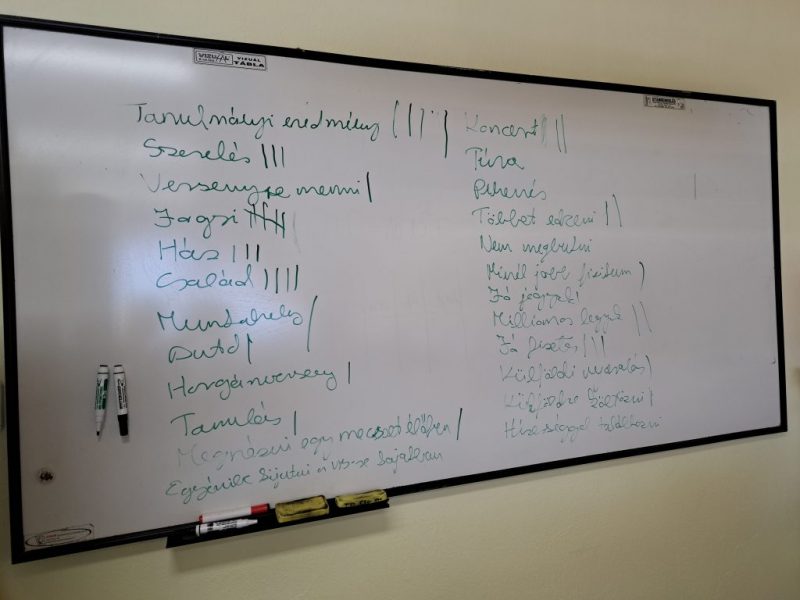 VIZUÁL TÁBLA
Tanulmányi eredmény ||||
Szerelés |||
Versenyre menni |
Jogsi
Ház |||
Család ||||
Munkahely |
Autó |
Horgászverseny |
Tanulás |
Megnézni egy meccset élőben |
Koncert |||
Túra
Pihenés
Többet edzeni ||
Nem megbukni
Minél jobb fizikum |
Jó jegyek!
Milliomos legyek ||
Jó fizetés |||
Külföldi utazás |
Külföldre költözni |
Hírességgel találkozni